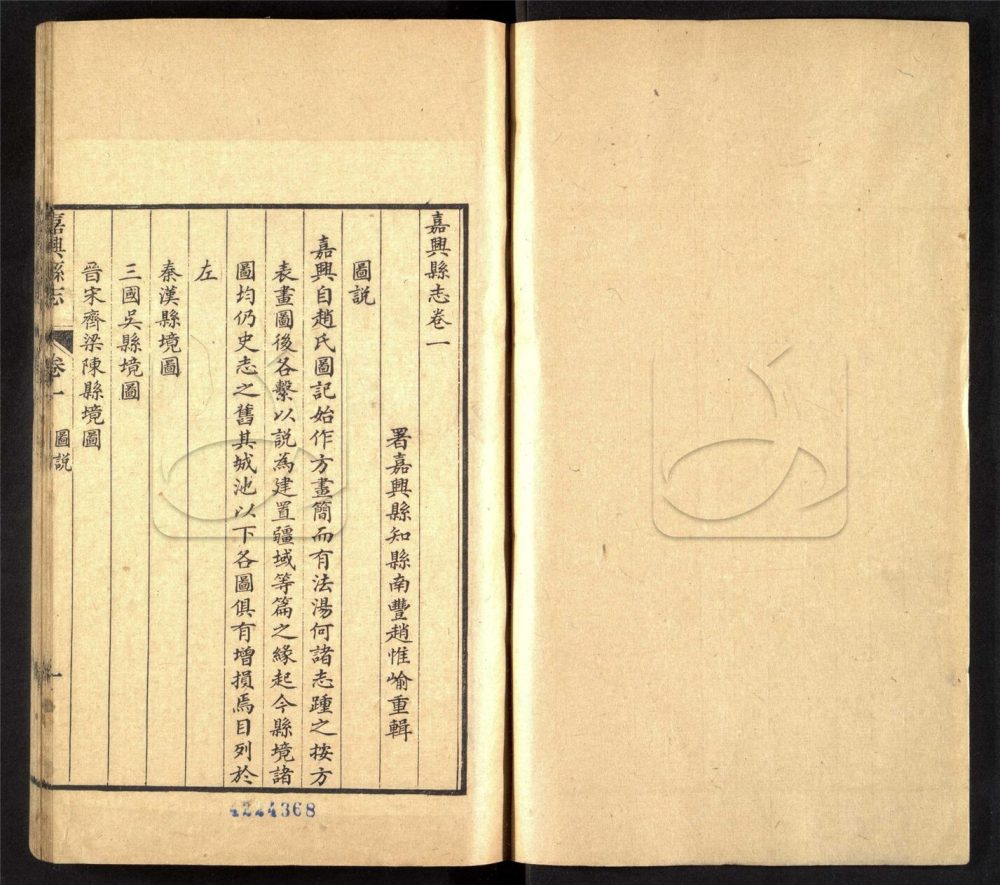 嘉興縣志卷一
署嘉興縣知縣南豐趙惟崳重輯
圖說
嘉興自趙氏圖記始作方畫簡而有法湯何諸志踵之按方
表畫圖後各繫以說為建置疆域等篇之緣起今縣境諸
圖均仍史志之舊其城池以下各圖俱有增損焉目列於
左
秦漢縣境圖
三國吳縣境圖
晉宋齊梁陳縣境圖
嘉興縣志 卷一 圖說 一
4224368